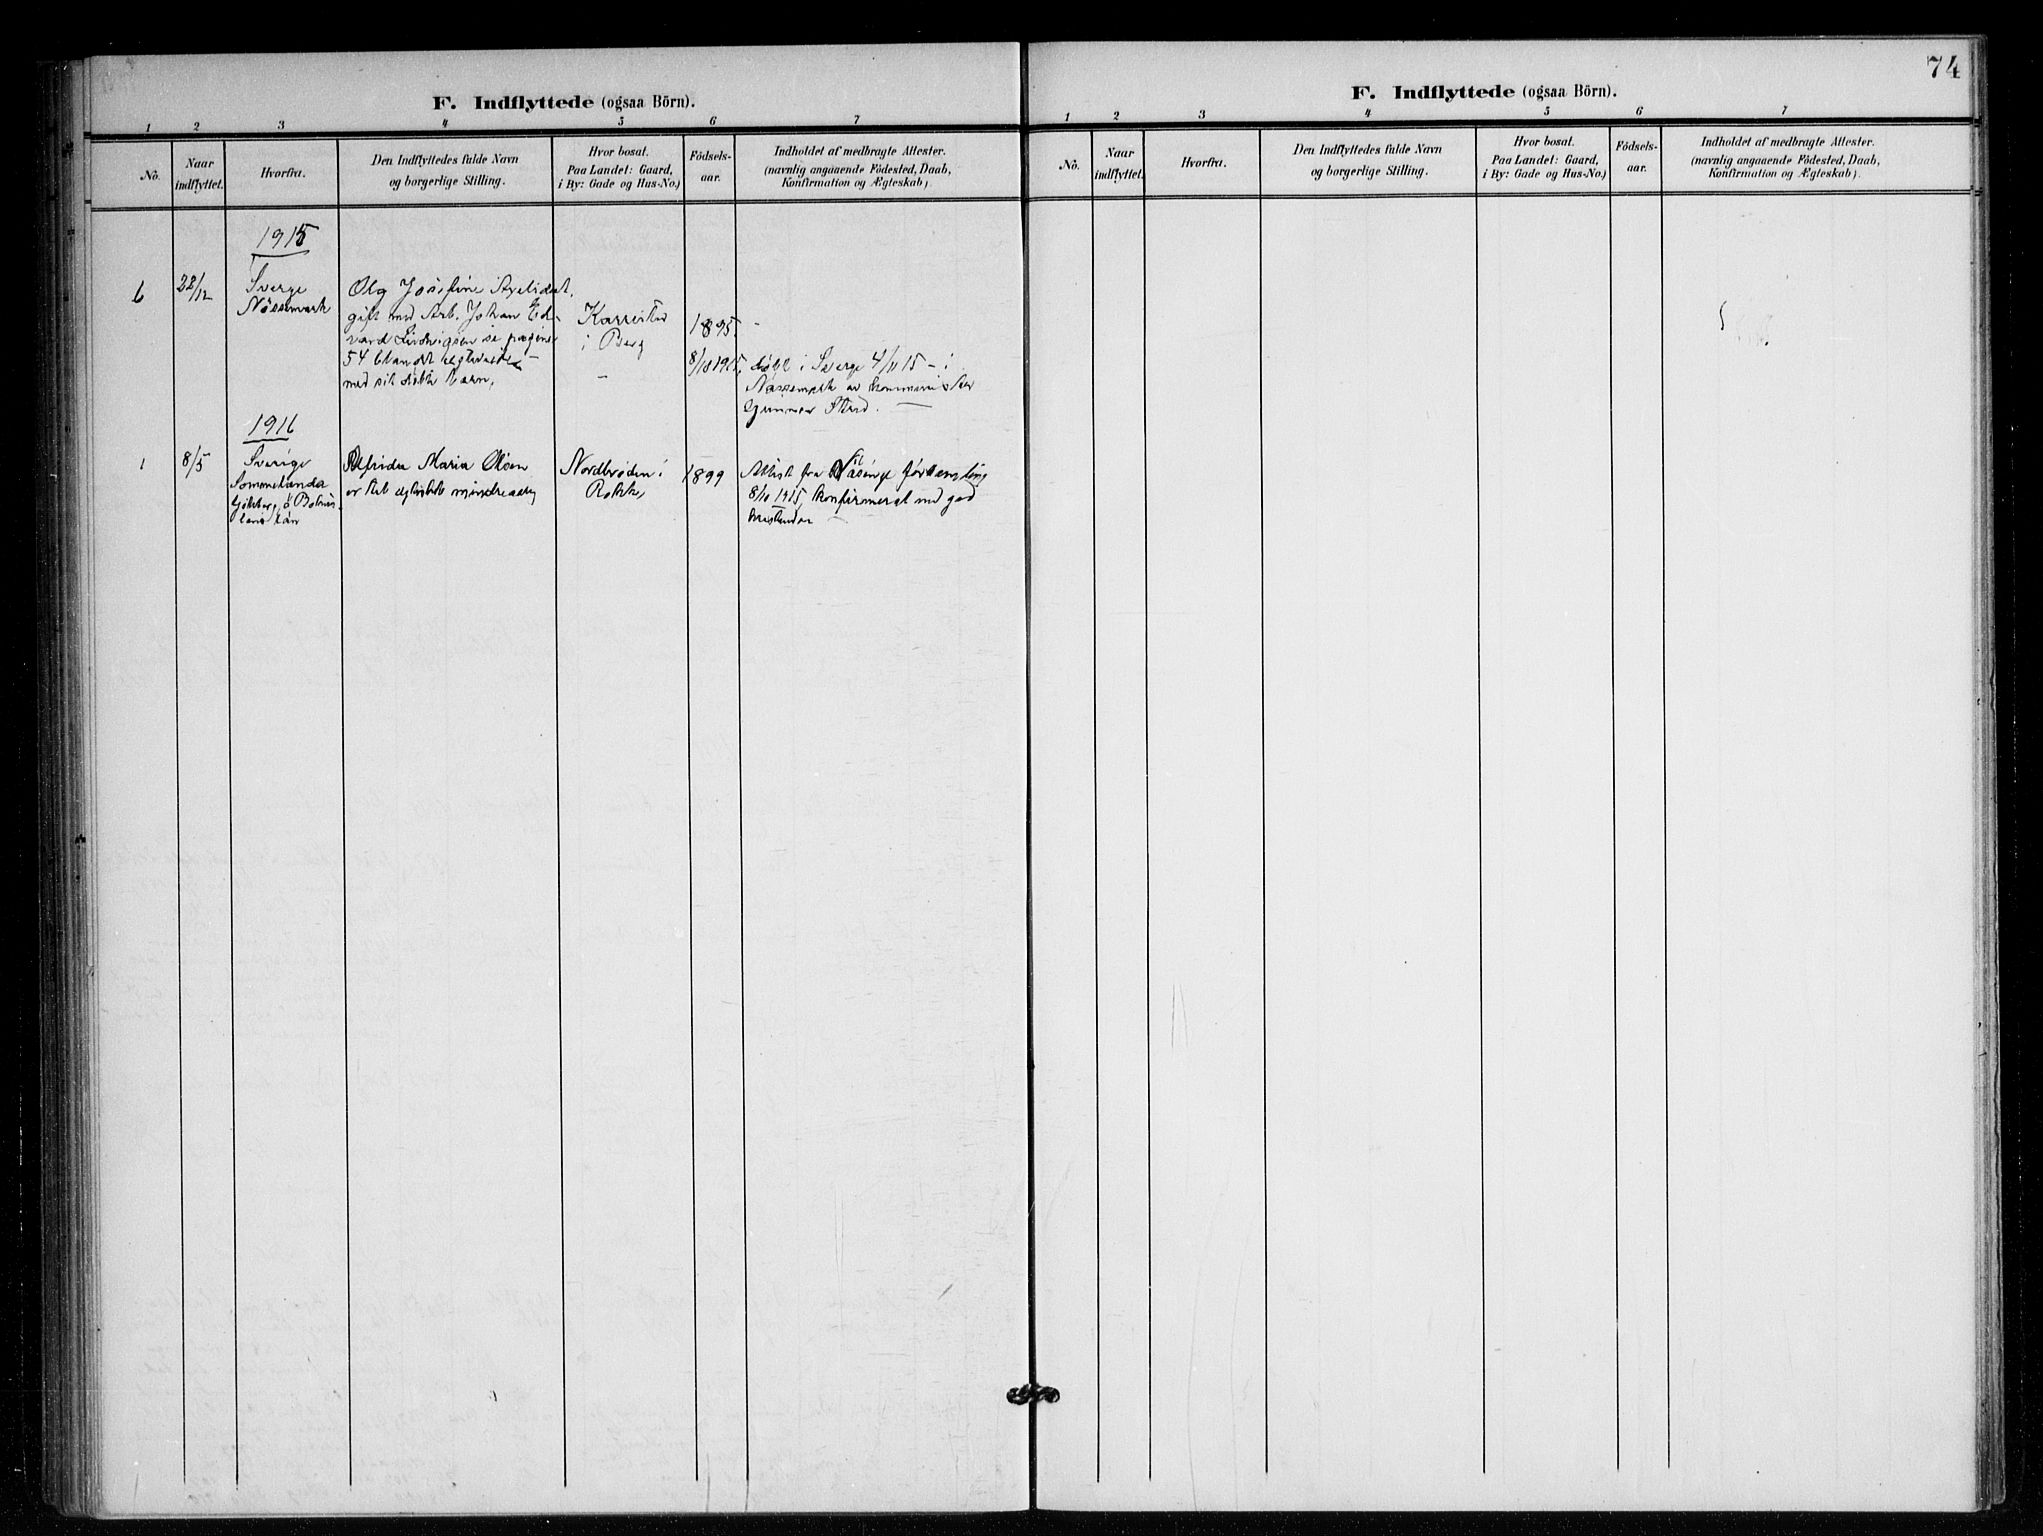 74
F. Indflyttede (ogsaa Börn).
1 2 3 4 5 6 7
No.
Naar indflyttet.
Hvorfra.
Den Indflyttedes fulde Navn
og borgerlige Stilling.
Hvor bosat.
Paa Landet: Gaard,
i By: Gade og Hus-No.)
Födsels-
aar.
Indholdet af medbragte Attester.
(navnlig angaaende Födested, Daab,
Konfirmation og Ægteskab).
1915
6
22/12
Sverge
Nössemark
Olg Josefine
gift med Arb. Johan Ed-
vard Ludvigsen se pagina
54 blandt
med sit döbte barn,
Karrestad
i Berg
1895.
8/10 1915,
döbt i Sverge 4/11 15 – i
Nössemark av Kommunister
Gunnar
1916
1
8/5
Sverige
Alfrida Maria Olsen
er
Nordbröden i
Rokke,
1899
Attest fra Näsinge församling
8/10 1915, konfirmeret med god
F. Indflyttede (ogsaa Börn).
1 2 3 4 5 6 7
No.
Naar
indflyttet.
Hvorfra.
Den Indflyttedes fulde Navn
og borgerlige Stilling.
Hvor bosat.
Paa Landet: Gaard,
i By: Gade og Hus-No.)
Födsels-
aar.
Indholdet af medbragte Attester.
(navnlig angaaende Födested, Daab,
Konfirmation og Ægteskab).